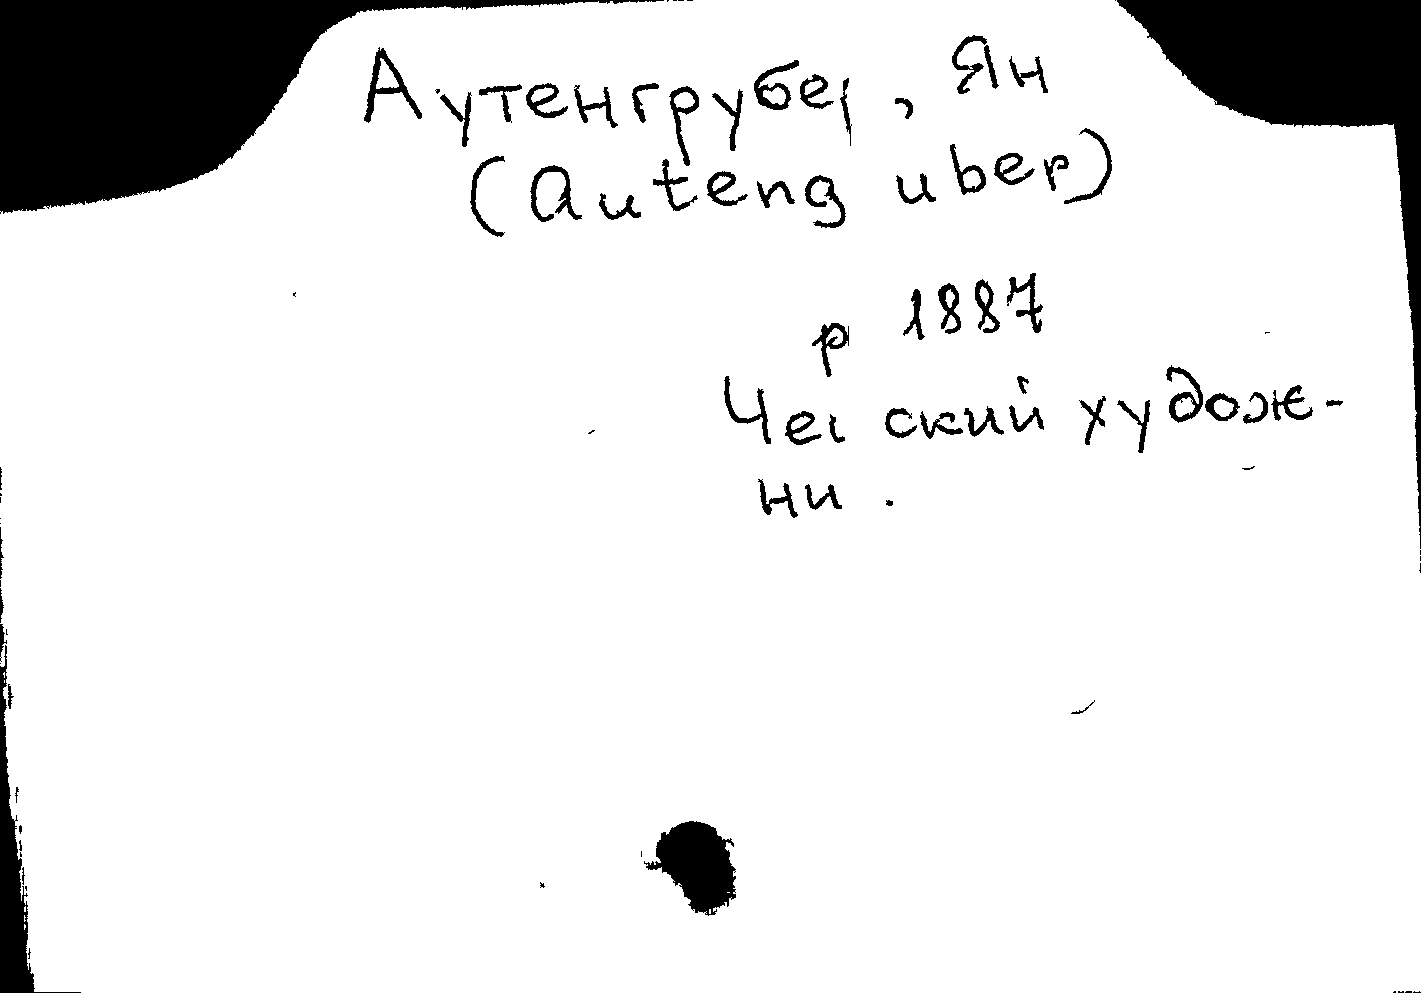 Аутенгрубер, Ян
(Autengruber)
р 1887
Чешский худож-
ник.